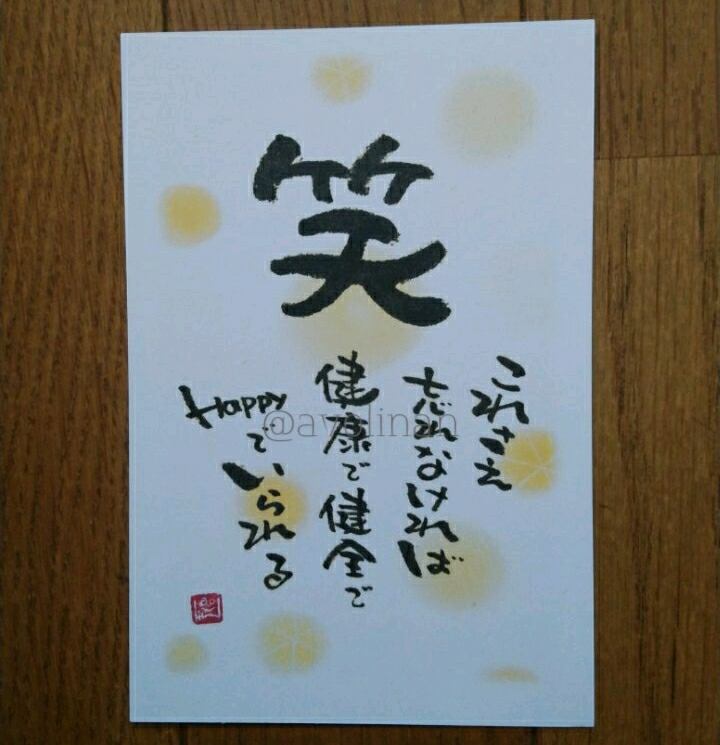 笑
これさえ
忘れなければ
健康で健全で
Happyで
いられる
@avelinan